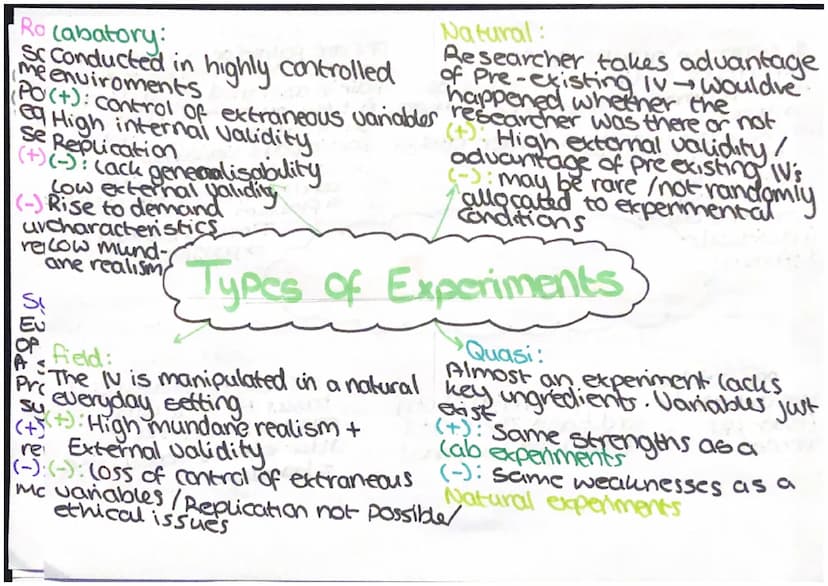 Ro
Labatory:
Sc
Conducted in highly controlled
me
enviroments
(Po
(+): control of extraneous variables
eq
High internal validity
Se
Replication
(+)
(-): Lack generalisability
Low external validity
(-)
Rise to demand
characteristics
re
Low mund-
ane realism
Natural:
Researcher takes advantage
of Pre-existing IV → Would've
happened whether the
researcher was there or not
(+): High external validity /
advantage of pre existing IV's
(-): may be rare / not randomly
allocated to experimental
conditions
Types of Experiments
Su
Eu
OP
A s
Pro
su
(+)
re
(-):
Mc
Field:
The IV is manipulated in a natural
everyday setting
(+): High mundane realism +
External validity
(-): Loss of control of extraneous
variables / Replication not possible/
ethical issues
Quasi:
Almost an experiment lacks
key ingredients. Variables just
exist
(+): Same strengths as a
Lab experiments
(-): Same weaknesses as a
Natural experiments